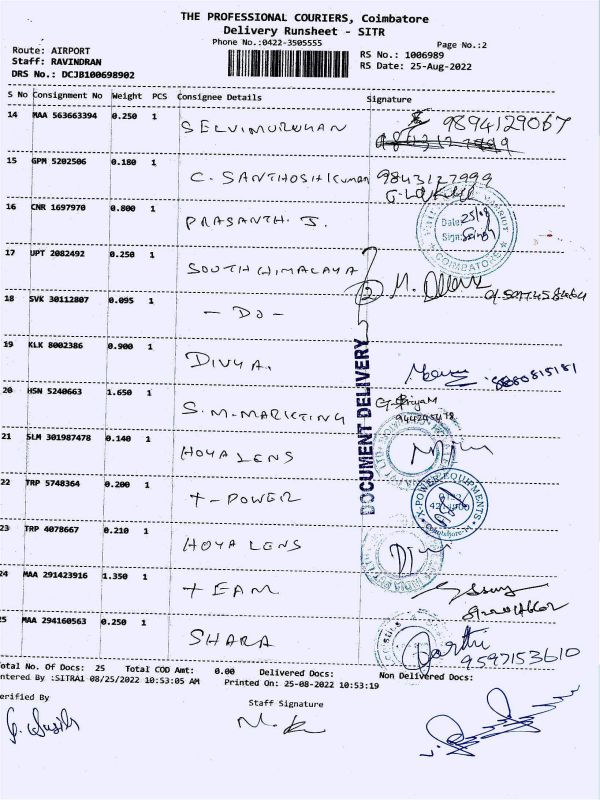 THE PROFESSIONAL COURIERS, Coimbatore
Delivery Runsheet - SITR
Phone No.:0422-3505555
Page No.:2
Route: AIRPORT
Staff: RAVINDRAN
DRS No.: DCJB100698902
RS No.: 1006989
RS Date: 25-Aug-2022
S No Consignment No Weight PCS Consignee Details Signature
14 MAA 563663394 0.250 1 SELVIMURUGHAN 9894129067
15 GPM 5202506 0.180 1 C. SANTHOSH Kumar 9843127999
16 CNR 1697970 0.800 1 PRASANTH. J.
Date: 25/08
Sign:
COIMBATORE
17 UPT 2082492 0.250 1 SOUTH HIMALAYA
2 M.
18 SVK 30112807 0.095 1 - DO -
19 KLK 8002386 0.900 1 DIVYA.
DOCUMENT DELIVERY
20 HSN 5240663 1.650 1 S. M. MARKETING G. Priya M
21 SLM 301987478 0.140 1 HOYA LENS
22 TRP 5748364 0.200 1 X-POWER
X-POWER EQUIPMENTS
23 TRP 4078667 0.210 1 HOYA LENS
24 MAA 291423916 1.350 1 XEAM
25 MAA 294160563 0.250 1 SHARA
9597153610
Total No. Of Docs: 25 Total COD Amt: 0.00 Delivered Docs: Non Delivered Docs:
Entered By :SITRA1 08/25/2022 10:53:05 AM Printed On: 25-08-2022 10:53:19
Verified By
Staff Signature